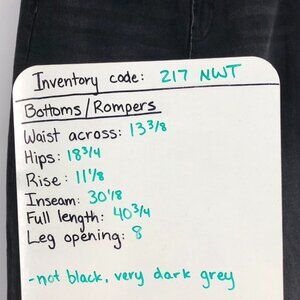 Inventory code: 217 NWT
Bottoms/Rompers
Waist across: 13 3/8
Hips: 18 3/4
Rise: 11 1/8
Inseam: 30 1/8
Full length: 40 3/4
Leg opening: 8
-not black, very dark grey